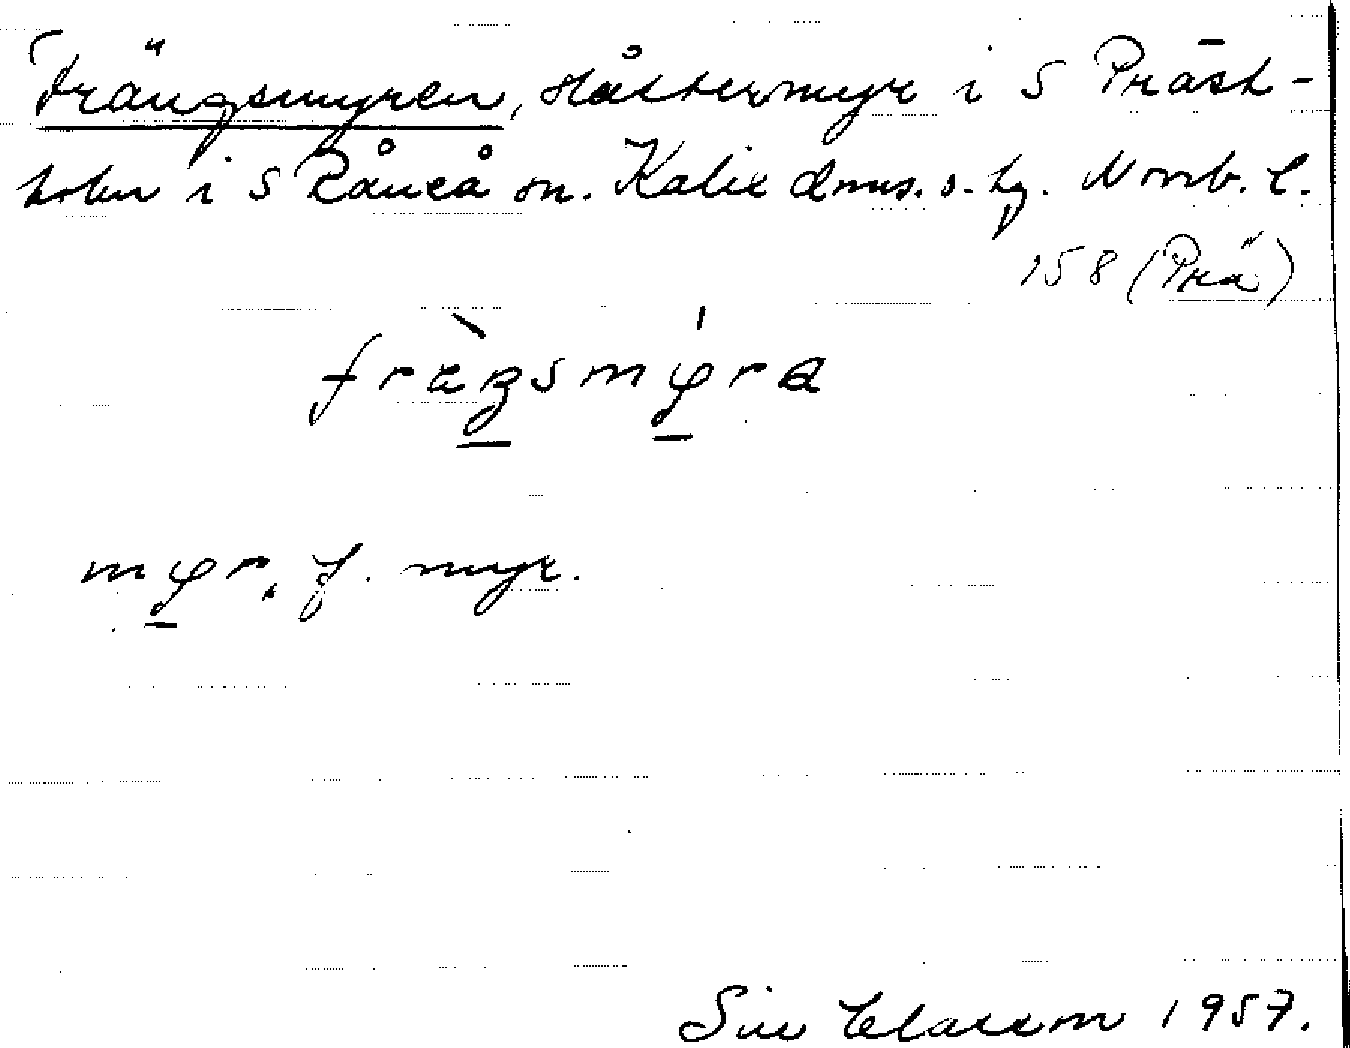 Frängsmyren, slåttermyr i S Präst-
holm i S Råneå sn. Kalix dms. o. hg. Norrb. l.
158 (Prä)
myr, f. myr.
Siv Clarem 1957.